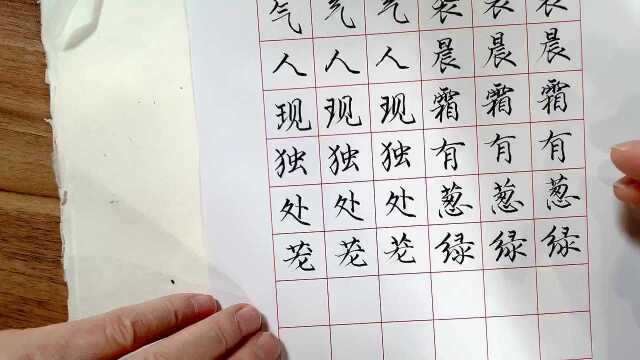 气 气 气
人 人 人 晨 晨 晨
现 现 现 霜 霜 霜
独 独 独 有 有 有
处 处 处 葱 葱 葱
绿 绿 绿